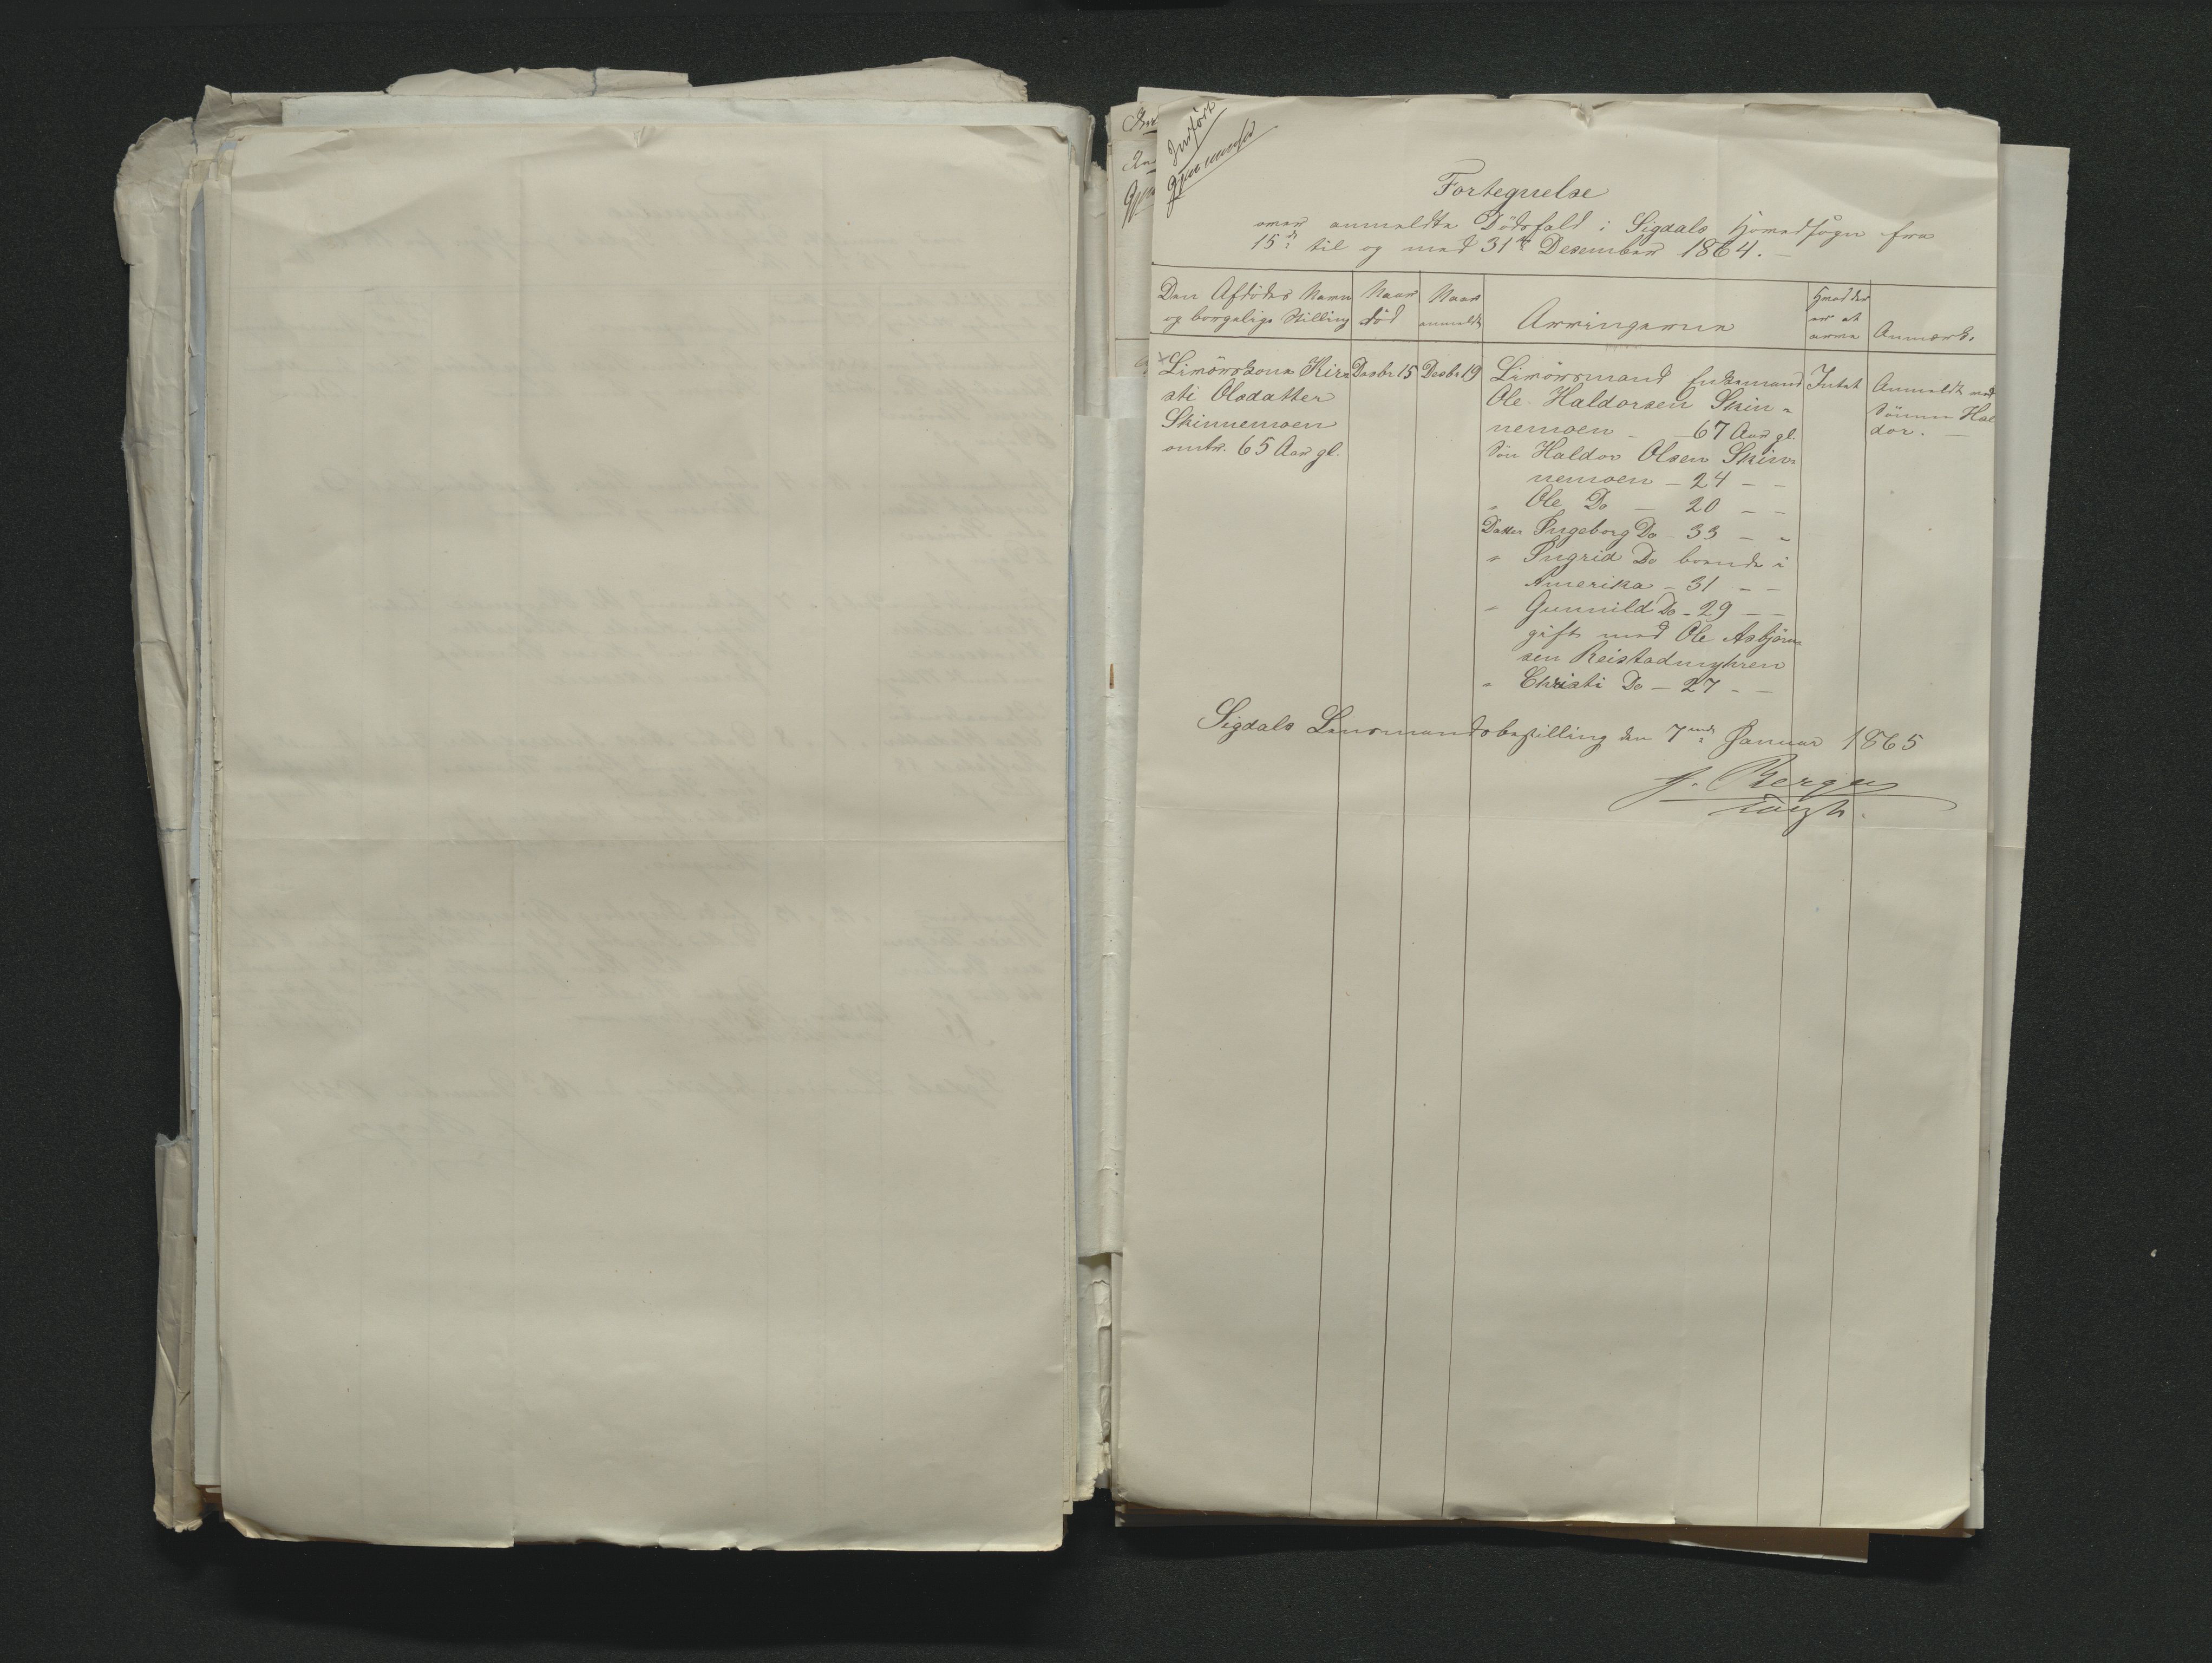 Indført
Gjennemseet
Fortegnelse
over anmeldte Dödsfald i Sigdals Hovedsogn fra
15de til og med 31te Desember 1864. –
Den Afdödes Navn
og borgelige Stilling
Naar
död
Naar
anmeldt
Arvingerne
Hvad der
er at
arve
Anmærk.
Livörskone Kir=
sti Olsdatter
Skinnemoen
omtr. 65 Aar gl.
Desbr 15
Desbr 19
Livörsmand Enkemand
Ole Haldorsen Skin=
nemoen – 67 Aar gl.
Sön Haldor Olsen Skin=
nemoen – 24 – –
" Ole Do – 20 – –
Datter Ingeborg Do – 33 – –
" Ingrid Do boende i
Amerika – 31 – –
" Gunnild Do – 29 – –
gift med Ole Asbjörn=
sen Reistadmyhren
" Christi Do – 27 – –
Intet
Anmeldt ved
Sönnen Hal
dor. –
Sigdals Lensmandsbestilling den 7nde Januar 1865
Berg